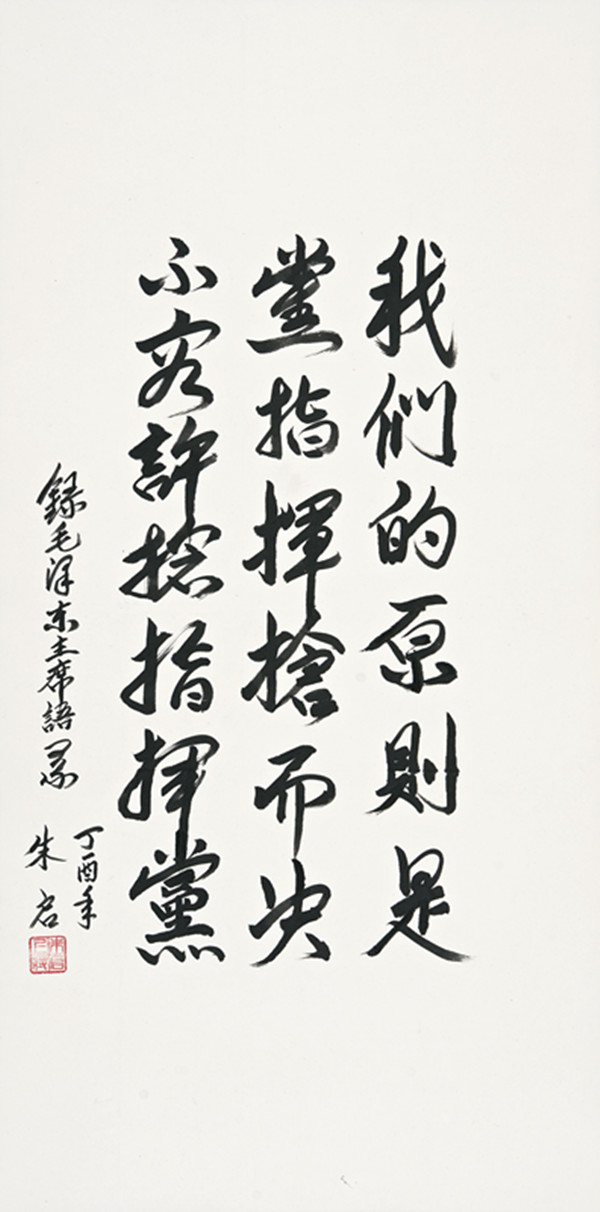 我們的原則是
黨指揮槍而决
不容許槍指揮黨
録毛泽东主席語录
丁酉年
朱启